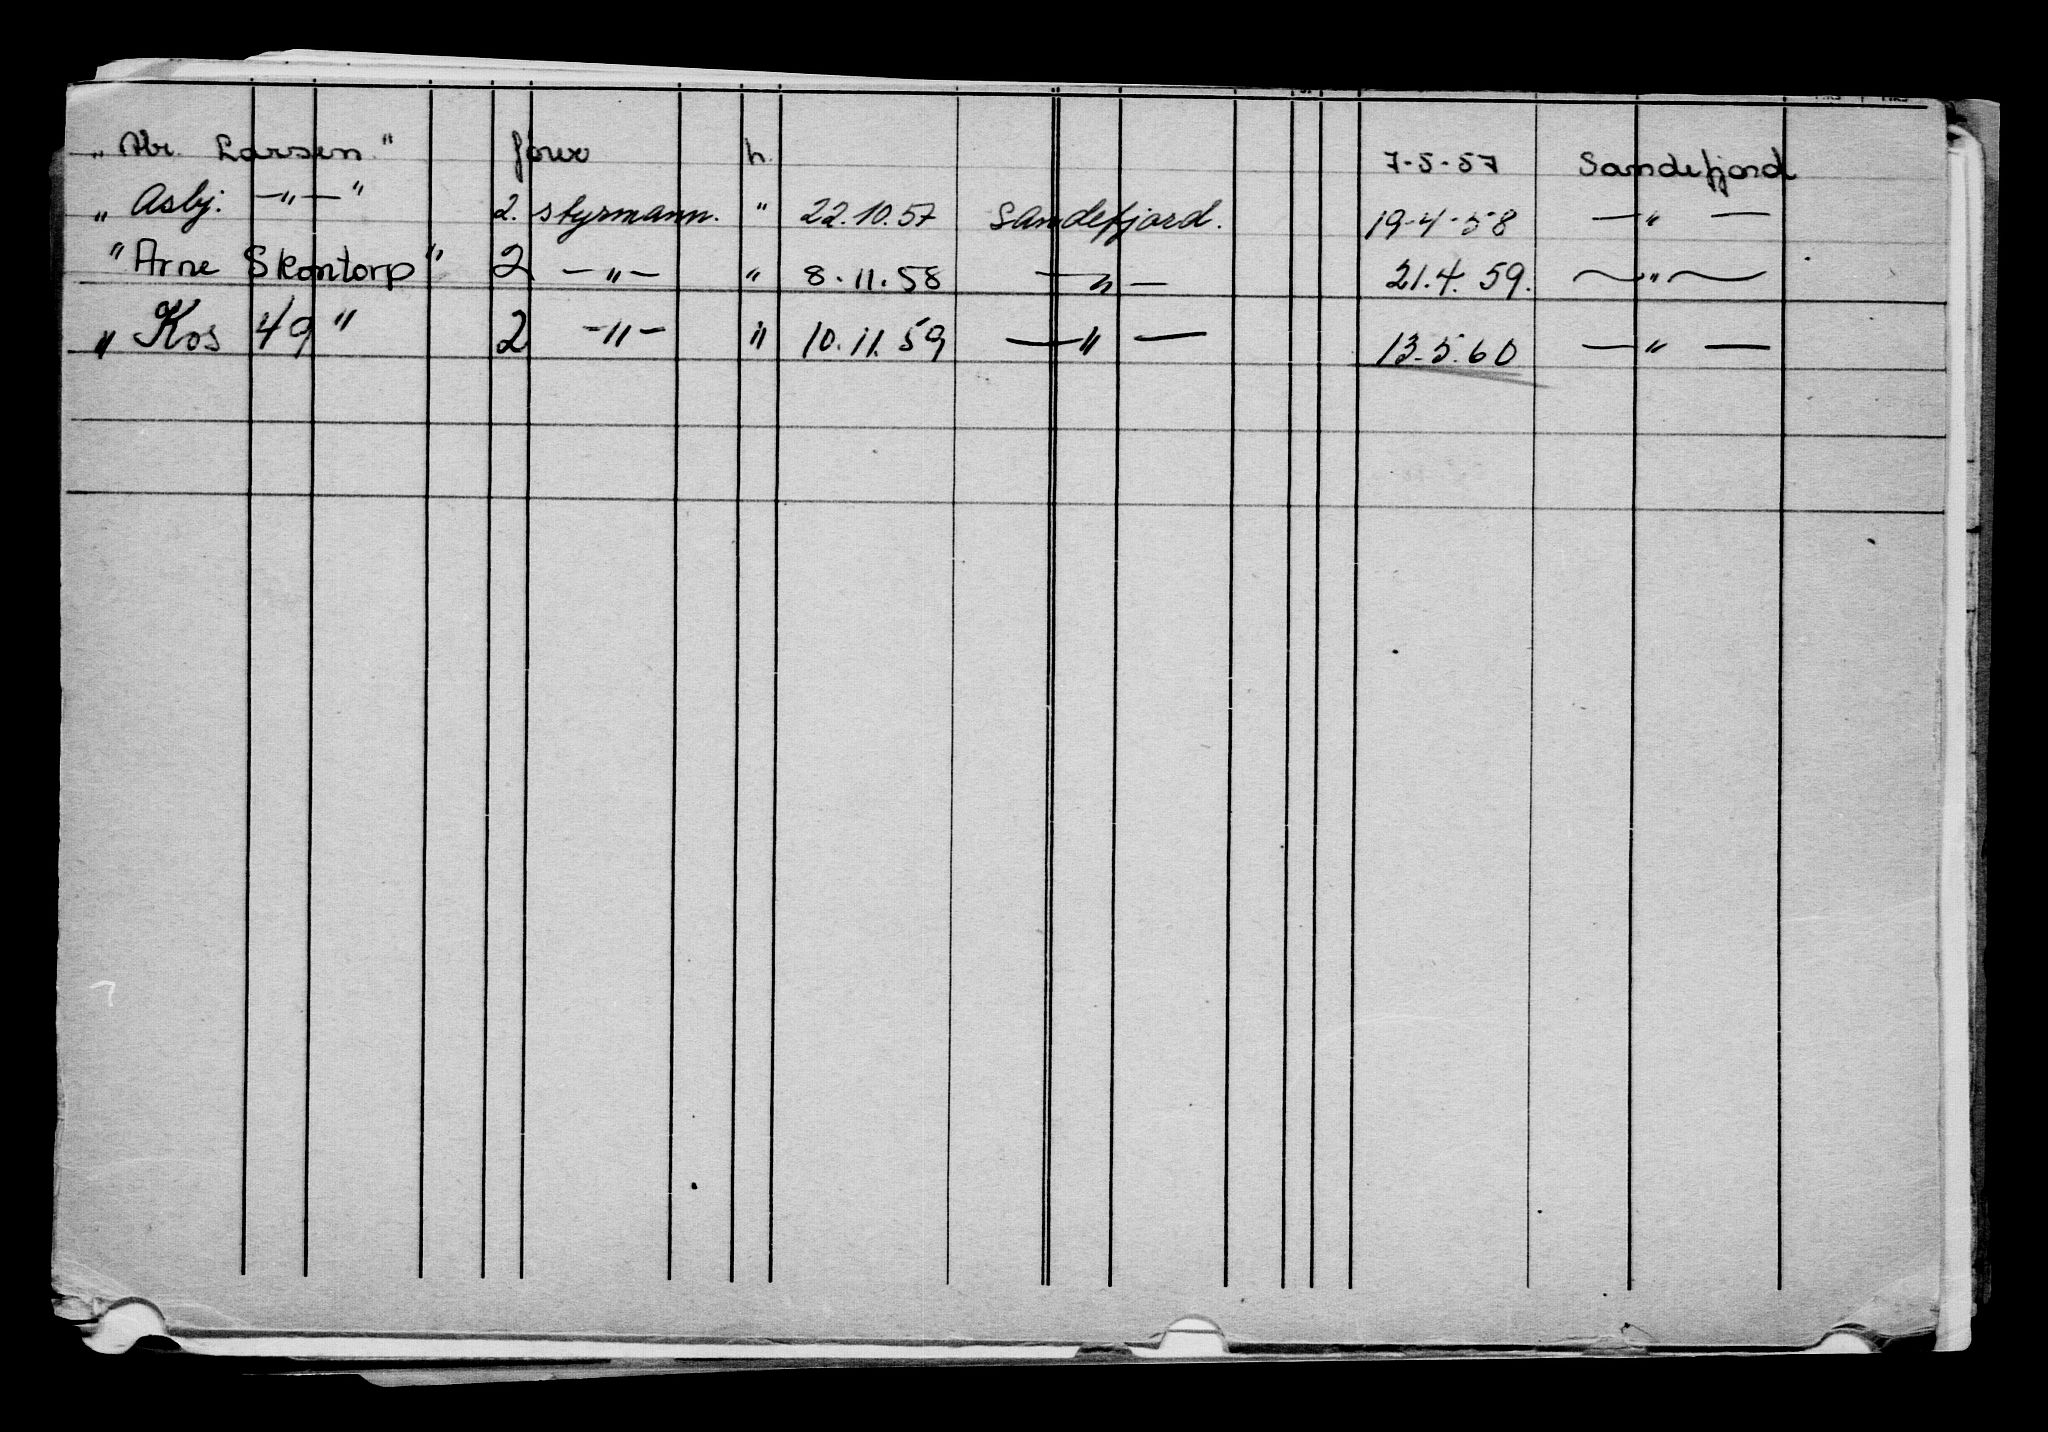 „ Abr. Larsen." h. 7-5-57 Sandefjord
„ Asbj. —"—" 2. styrmann. " 22.10.57 Sandefjord. 19-4-58 —"—
"Arne Skontorp" 2 —"— " 8.11.58 —"— 21.4.59. —"—
„ Kos 49" 2 —"— " 10.11.59 —"— 13.5.60 —"—